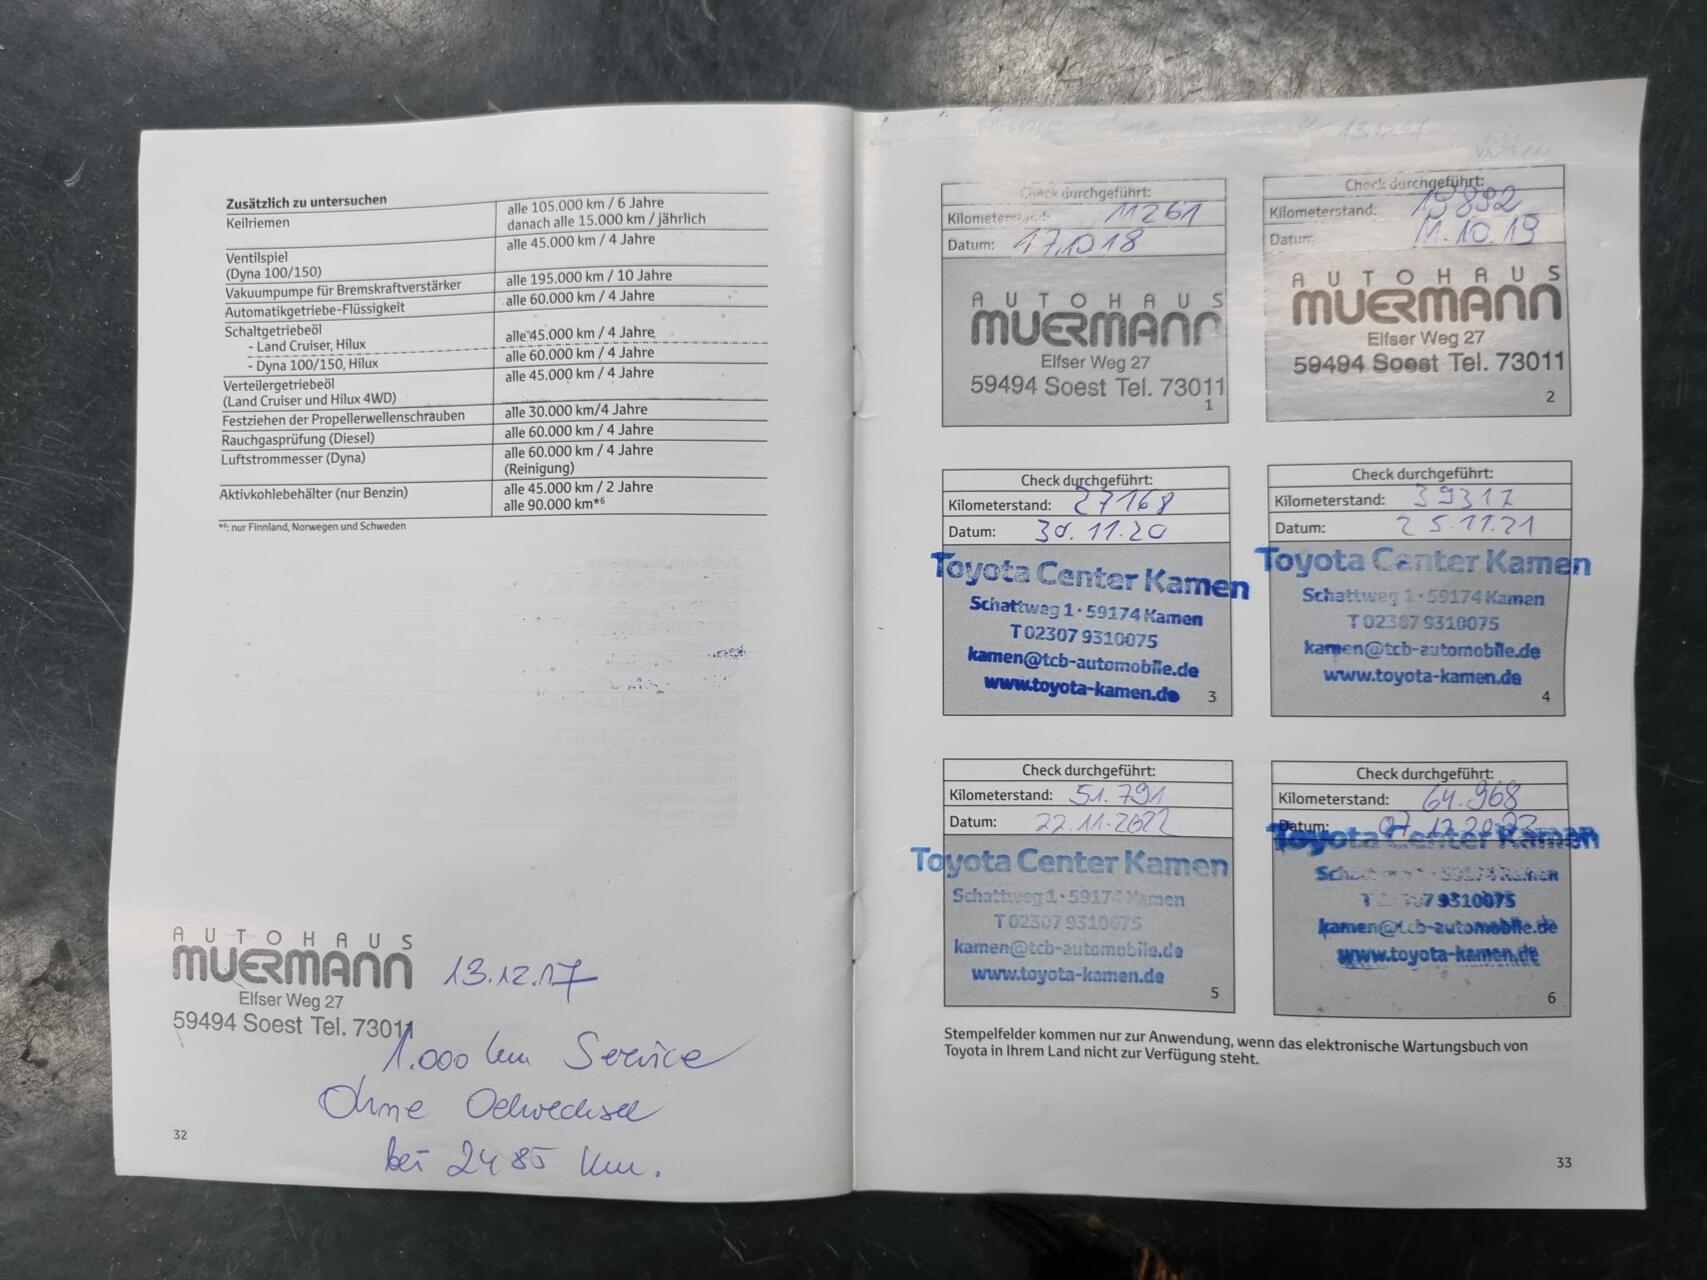 Zusätzlich zu untersuchen
Keilriemen
alle 105.000 km / 6 Jahre
danach alle 15.000 km / jährlich
Ventilspiel
(Dyna 100/150)
alle 45.000 km / 4 Jahre
Vakuumpumpe für Bremskraftverstärker
alle 195.000 km / 10 Jahre
Automatikgetriebe-Flüssigkeit
alle 60.000 km / 4 Jahre
Schaltgetriebeöl
- Land Cruiser, Hilux
alle 45.000 km / 4 Jahre
- Dyna 100/150, Hilux
alle 60.000 km / 4 Jahre
Verteilergetriebeöl
(Land Cruiser und Hilux 4WD)
alle 45.000 km / 4 Jahre
Festziehen der Propellerwellenschrauben
alle 30.000 km/4 Jahre
Rauchgasprüfung (Diesel)
alle 60.000 km / 4 Jahre
Luftstrommesser (Dyna)
alle 60.000 km / 4 Jahre
(Reinigung)
Aktivkohlebehälter (nur Benzin)
alle 45.000 km / 2 Jahre
alle 90.000 km*⁶
*⁶: nur Finnland, Norwegen und Schweden
AUTOHAUS
MUERMANN
Elfser Weg 27
59494 Soest Tel. 73011
13.12.17
1.000 km Service
Ohne Oelwechsel
bei 2485 km.
32
13.12.17
Check durchgeführt:
Kilometerstand: 11261
Datum: 17.10.18
AUTOHAUS
MUERMANN
Elfser Weg 27
59494 Soest Tel. 73011
1
Check durchgeführt:
Kilometerstand: 19892
Datum: 11.10.19
AUTOHAUS
MUERMANN
Elfser Weg 27
59494 Soest Tel. 73011
2
Check durchgeführt:
Kilometerstand: 27168
Datum: 30.11.20
Toyota Center Kamen
Schattweg 1 · 59174 Kamen
T 02307 9310075
kamen@tcb-automobile.de
www.toyota-kamen.de
3
Check durchgeführt:
Kilometerstand: 39317
Datum: 25.11.21
Toyota Center Kamen
Schattweg 1 · 59174 Kamen
T 02307 9310075
kamen@tcb-automobile.de
www.toyota-kamen.de
4
Check durchgeführt:
Kilometerstand: 51.791
Datum: 22.11.2022
Toyota Center Kamen
Schattweg 1 · 59174 Kamen
T 02307 9310075
kamen@tcb-automobile.de
www.toyota-kamen.de
5
Check durchgeführt:
Kilometerstand: 64.968
Datum: 07.12.2023
Toyota Center Kamen
59174 Kamen
9310075
kamen@tcb-automobile.de
www.toyota-kamen.de
6
Stempelfelder kommen nur zur Anwendung, wenn das elektronische Wartungsbuch von
Toyota in Ihrem Land nicht zur Verfügung steht.
33